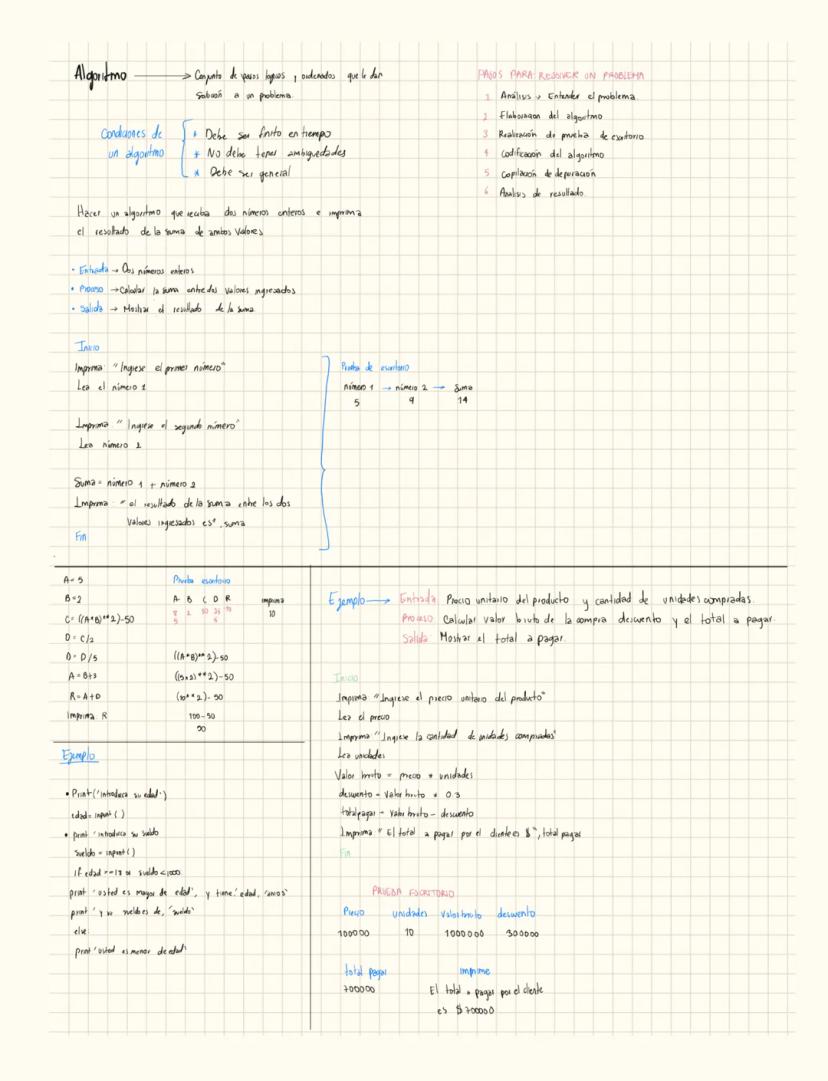 Algoritmo → Conjunto de pasos logicos y ordenados que le dan
solución a un problema.
Condiciones de
un algoritmo
* Debe ser finito en tiempo
* No debe tener ambiguedades
* Debe ser general
PASOS PARA RESOLVER UN PROBLEMA
1 Análisis → Entender el problema
2 Elaboracion del algoritmo
3 Realización de prueba de escritorio
4 Codificación del algoritmo
5 Copilación de depuración
6 Analisis de resultado.
Hacer un algoritmo que reciba dos números enteros e imprima
el resultado de la suma de ambos valores
• Entrada → Dos números enteros
• Proceso → Calcular la suma entre dos valores ingresados
• Salida → Mostrar el resultado de la suma
Inicio
Imprima "Ingrese el primer número"
Lea el número 1
Imprima "Ingrese el segundo número"
Lea número 2
Suma = número 1 + número 2
Imprima "el resultado de la suma entre los dos
valores ingresados es", suma
Fin
Prueba de escritorio
número 1 → número 2 → Suma
5 9 14
A= 5
B=2
C= ((A*B)**2)-50
D = C/2
D = D/5
A = B+3
R = A+D
Imprima R
Prueba escritorio
A B C D R imprima
5 2 50 25 10 10
5 5
((A*B)**2)-50
((5x2)**2)-50
(10**2)-50
100-50
50
Ejemplo
• Print('introduzca su edad:')
edad= input ( )
• print 'introduzca su sueldo
sueldo = input ( )
if edad >=18 or sueldo <1000
print 'usted es mayor de edad', y tiene', edad, 'anos'
print ' y su sueldo es de, 'sueldo'
else
print 'usted es menor de edad'
Ejemplo → Entrada Precio unitario del producto y cantidad de unidades compradas.
Proceso Calcular valor bruto de la compra descuento y el total a pagar.
Salida Mostrar el total a pagar.
Inicio
Imprima "Ingrese el precio unitario del producto"
Lea el precio
Imprima "Ingrese la cantidad de unidades compradas"
Lea unidades
Valor bruto = precio * unidades
descuento = Valor bruto * 0.3
total pagar = Valor bruto - descuento
Imprima " El total a pagar por el cliente es $", total pagar
Fin
PRUEBA ESCRITORIO
Precio unidades Valor bruto descuento
100000 10 1000000 300000
total pagar imprime
700000 El total a pagar por el cliente
es $700000